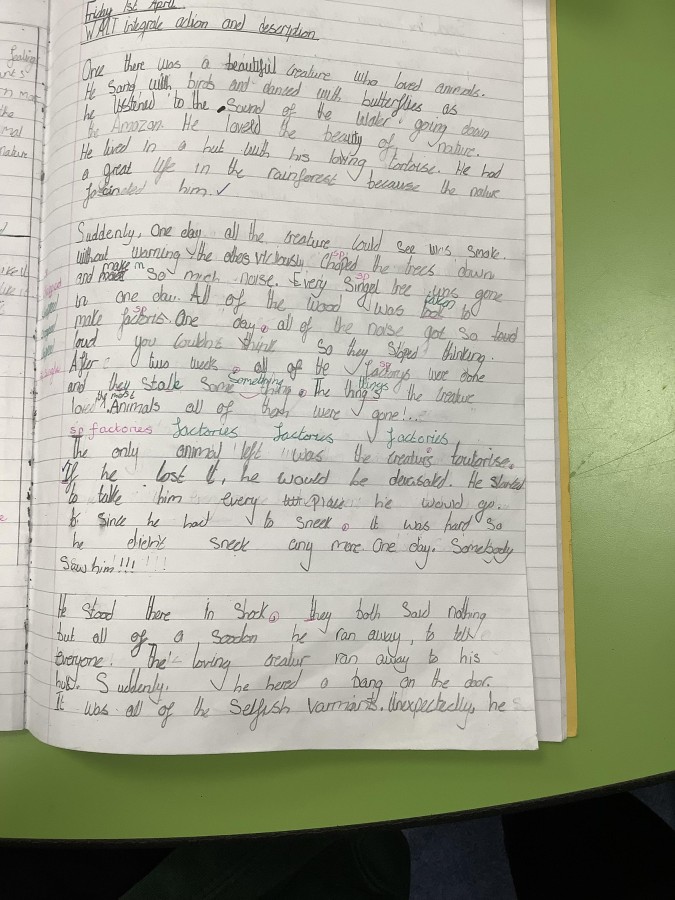 Friday 1st April
WALT integrate action and description
Once there was a beautiful creature who loved animals.
He sang with birds and danced with butterflies as
he listened to the sound of the water going down
the Amazon. He loved the beauty of nature.
He lived in a hut with his loving tortoise. He had
a great life in the rainforest because the nature
him. ✓
Suddenly, One day all the creature could see was smoke.
without warning the others viciously choped the trees down
and make so much noise. Every singel tree was gone
in one day. All of the wood was taken to
make factoris. One day, all of the noise got so loud
loud you couldn't think so they stoped thinking.
After two weeks, all of the factorys were done
and they stole something. The things the creature
loved the most. Animals all of them were gone!...
sp factories factories factories factories
The only animal left was the creaturs toutorise.
If he lost it, he would be He started
to take him every place he would go.
since he had to sneek. it was hard so
he didn't sneek any more. One day. Somebody
saw him!!! !!!
He stood there in shock. they both said nothing
but all of a sooden he ran away, to tell
everyone. The loving creatur ran away to his
hut. Suddenly. he hered a bang on the door.
It was all of the selfish varmints. Unexpectedly, he